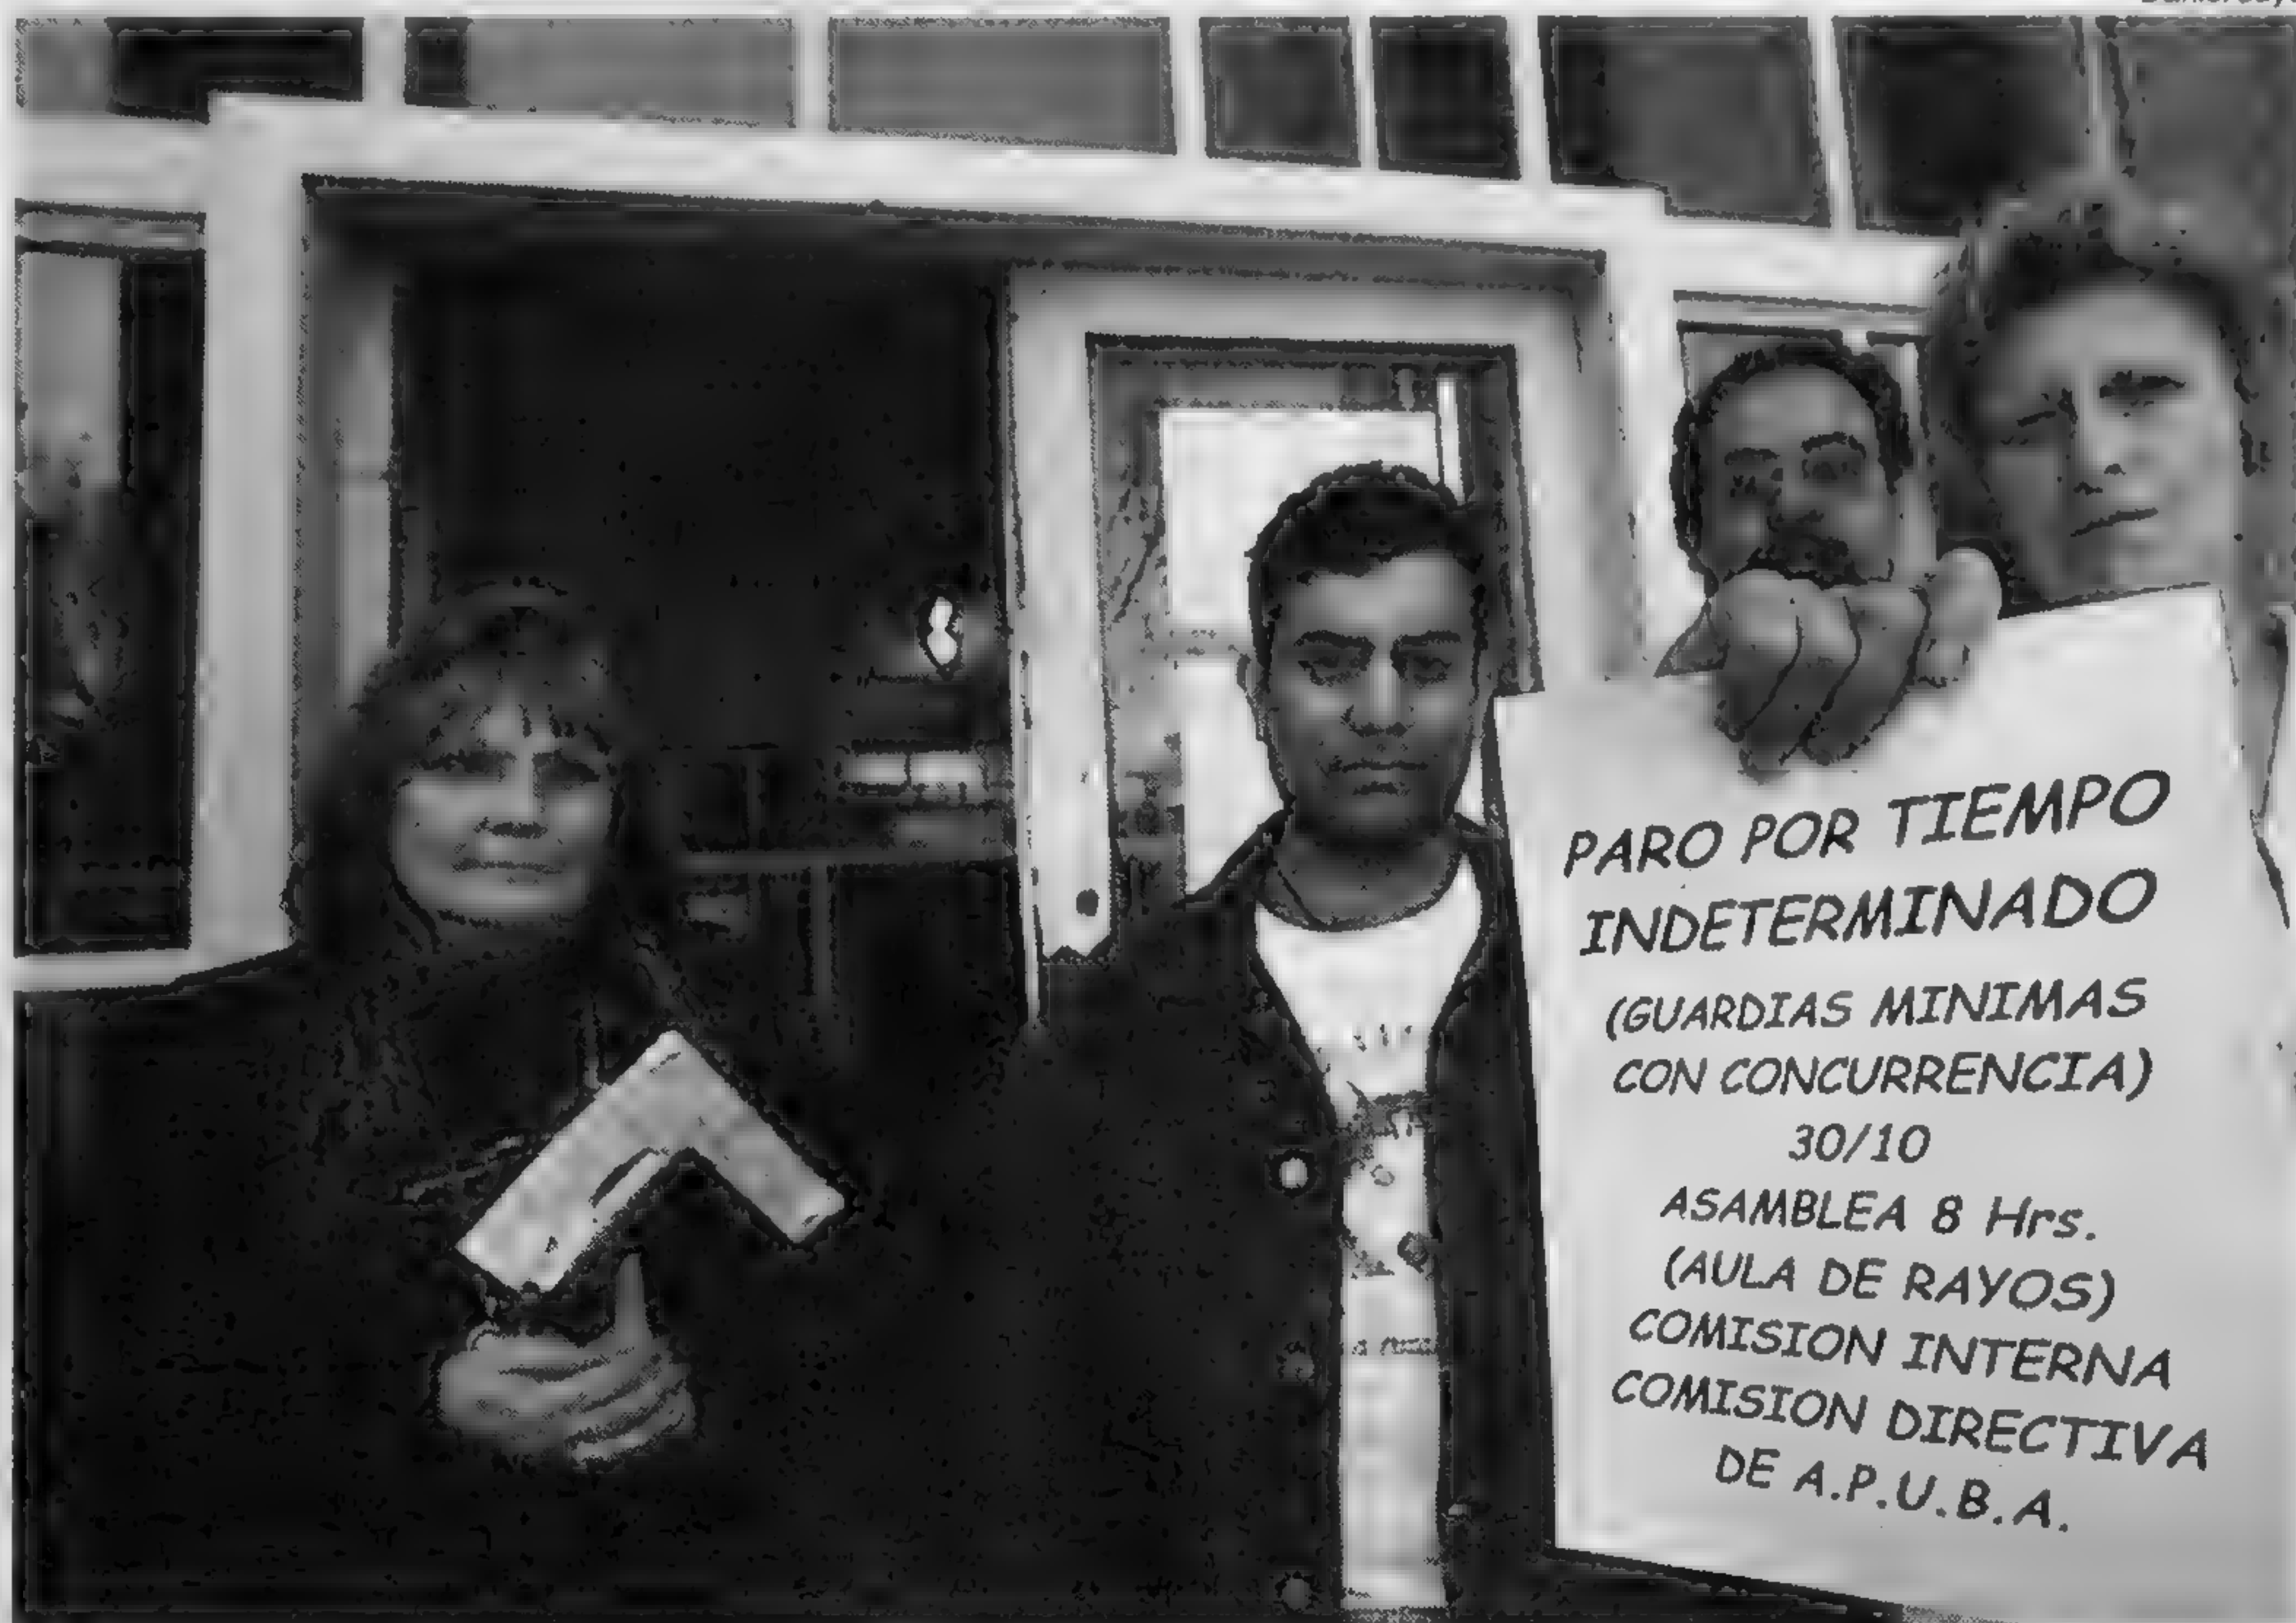 PARO POR TIEMPO
INDETERMINADO
(GUARDIAS MINIMAS
CON CONCURRENCIA)
30/10
ASAMBLEA 8 Hrs.
(AULA DE RAYOS)
COMISION INTERNA
COMISION DIRECTIVA
DE A.P.U.B.A.